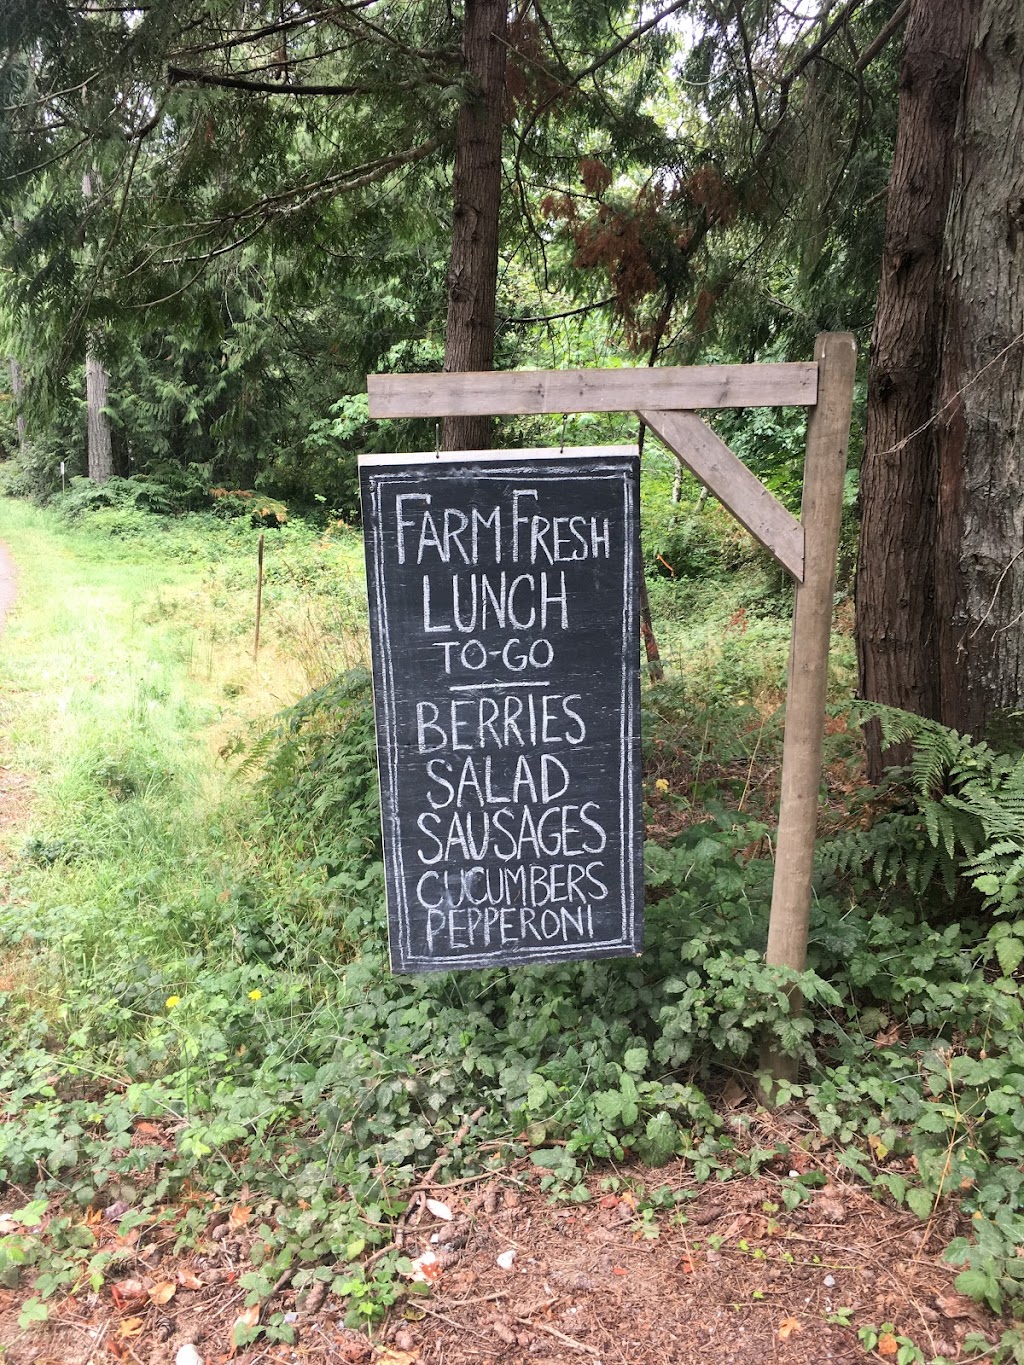 FARM FRESH
LUNCH
TO-GO
BERRIES
SALAD
SAUSAGES
CUCUMBERS
PEPPERONI